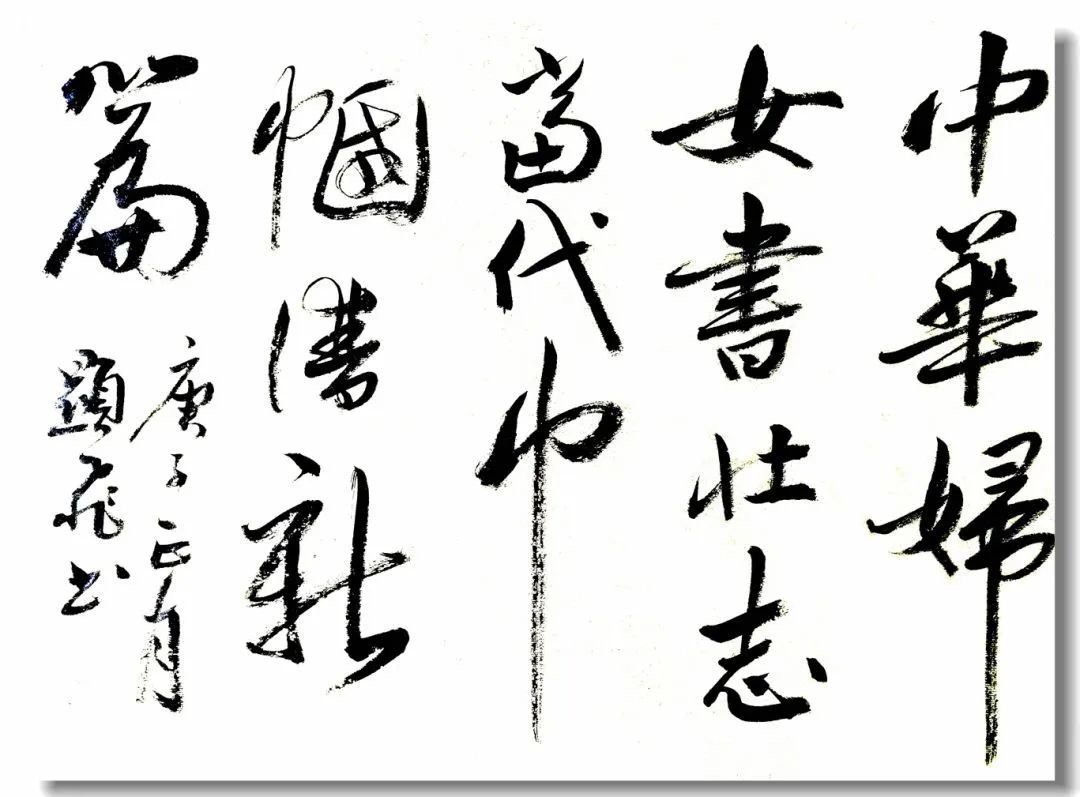 中華婦
女書壮志
當代巾
幗譜新
篇
庚子正月
顯飛书